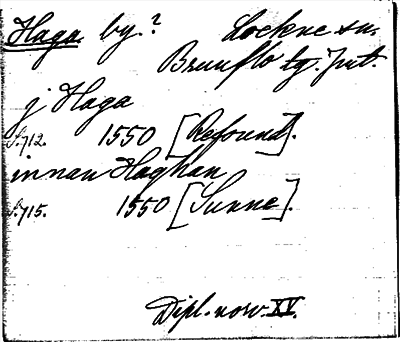 Haga by.? Lockne sn.
Brunflo tg. Jmt.
j Haga
S.712. 1550 [Refsund].
innan Haghan
S.715. 1550 [Sunne].
Dipl. norv. XV.